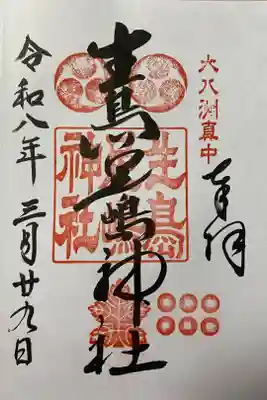 大八洲真中
奉拝
生島足嶋神社
生島
足島
神社
令和八年三月廿九日